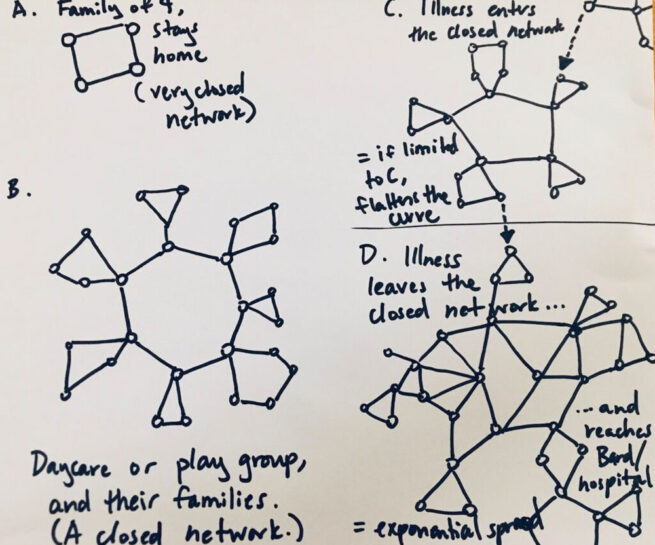 A. Family of 4,
stays
home
(very closed
network)
B.
Daycare or play group,
and their families.
(A closed network.)
C. Illness enters
the closed network
= if limited
to C,
flattens the
curve
D. Illness
leaves the
closed network...
...and
reaches
Bard/
hospital
= exponential spread